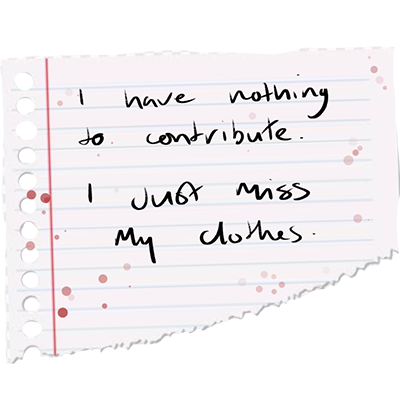 I have nothing
to contribute.
I Just miss
My clothes.